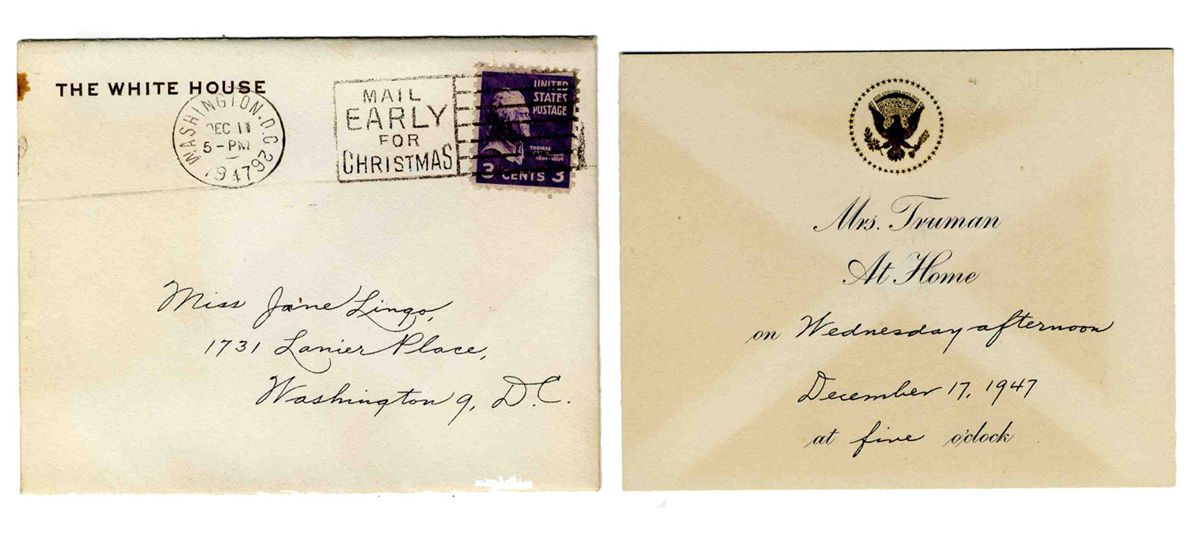 THE WHITE HOUSE
WASHINGTON, D.C. 29
DEC 11
5-PM
1947
MAIL
EARLY
FOR
CHRISTMAS
UNITED
STATES
POSTAGE
THOMAS
3 CENTS 3
Miss Jane Lingo,
1731 Lanier Place,
Washington 9, D.C.
Mrs. Truman
At Home
on Wednesday afternoon
December 17, 1947
at five o'clock